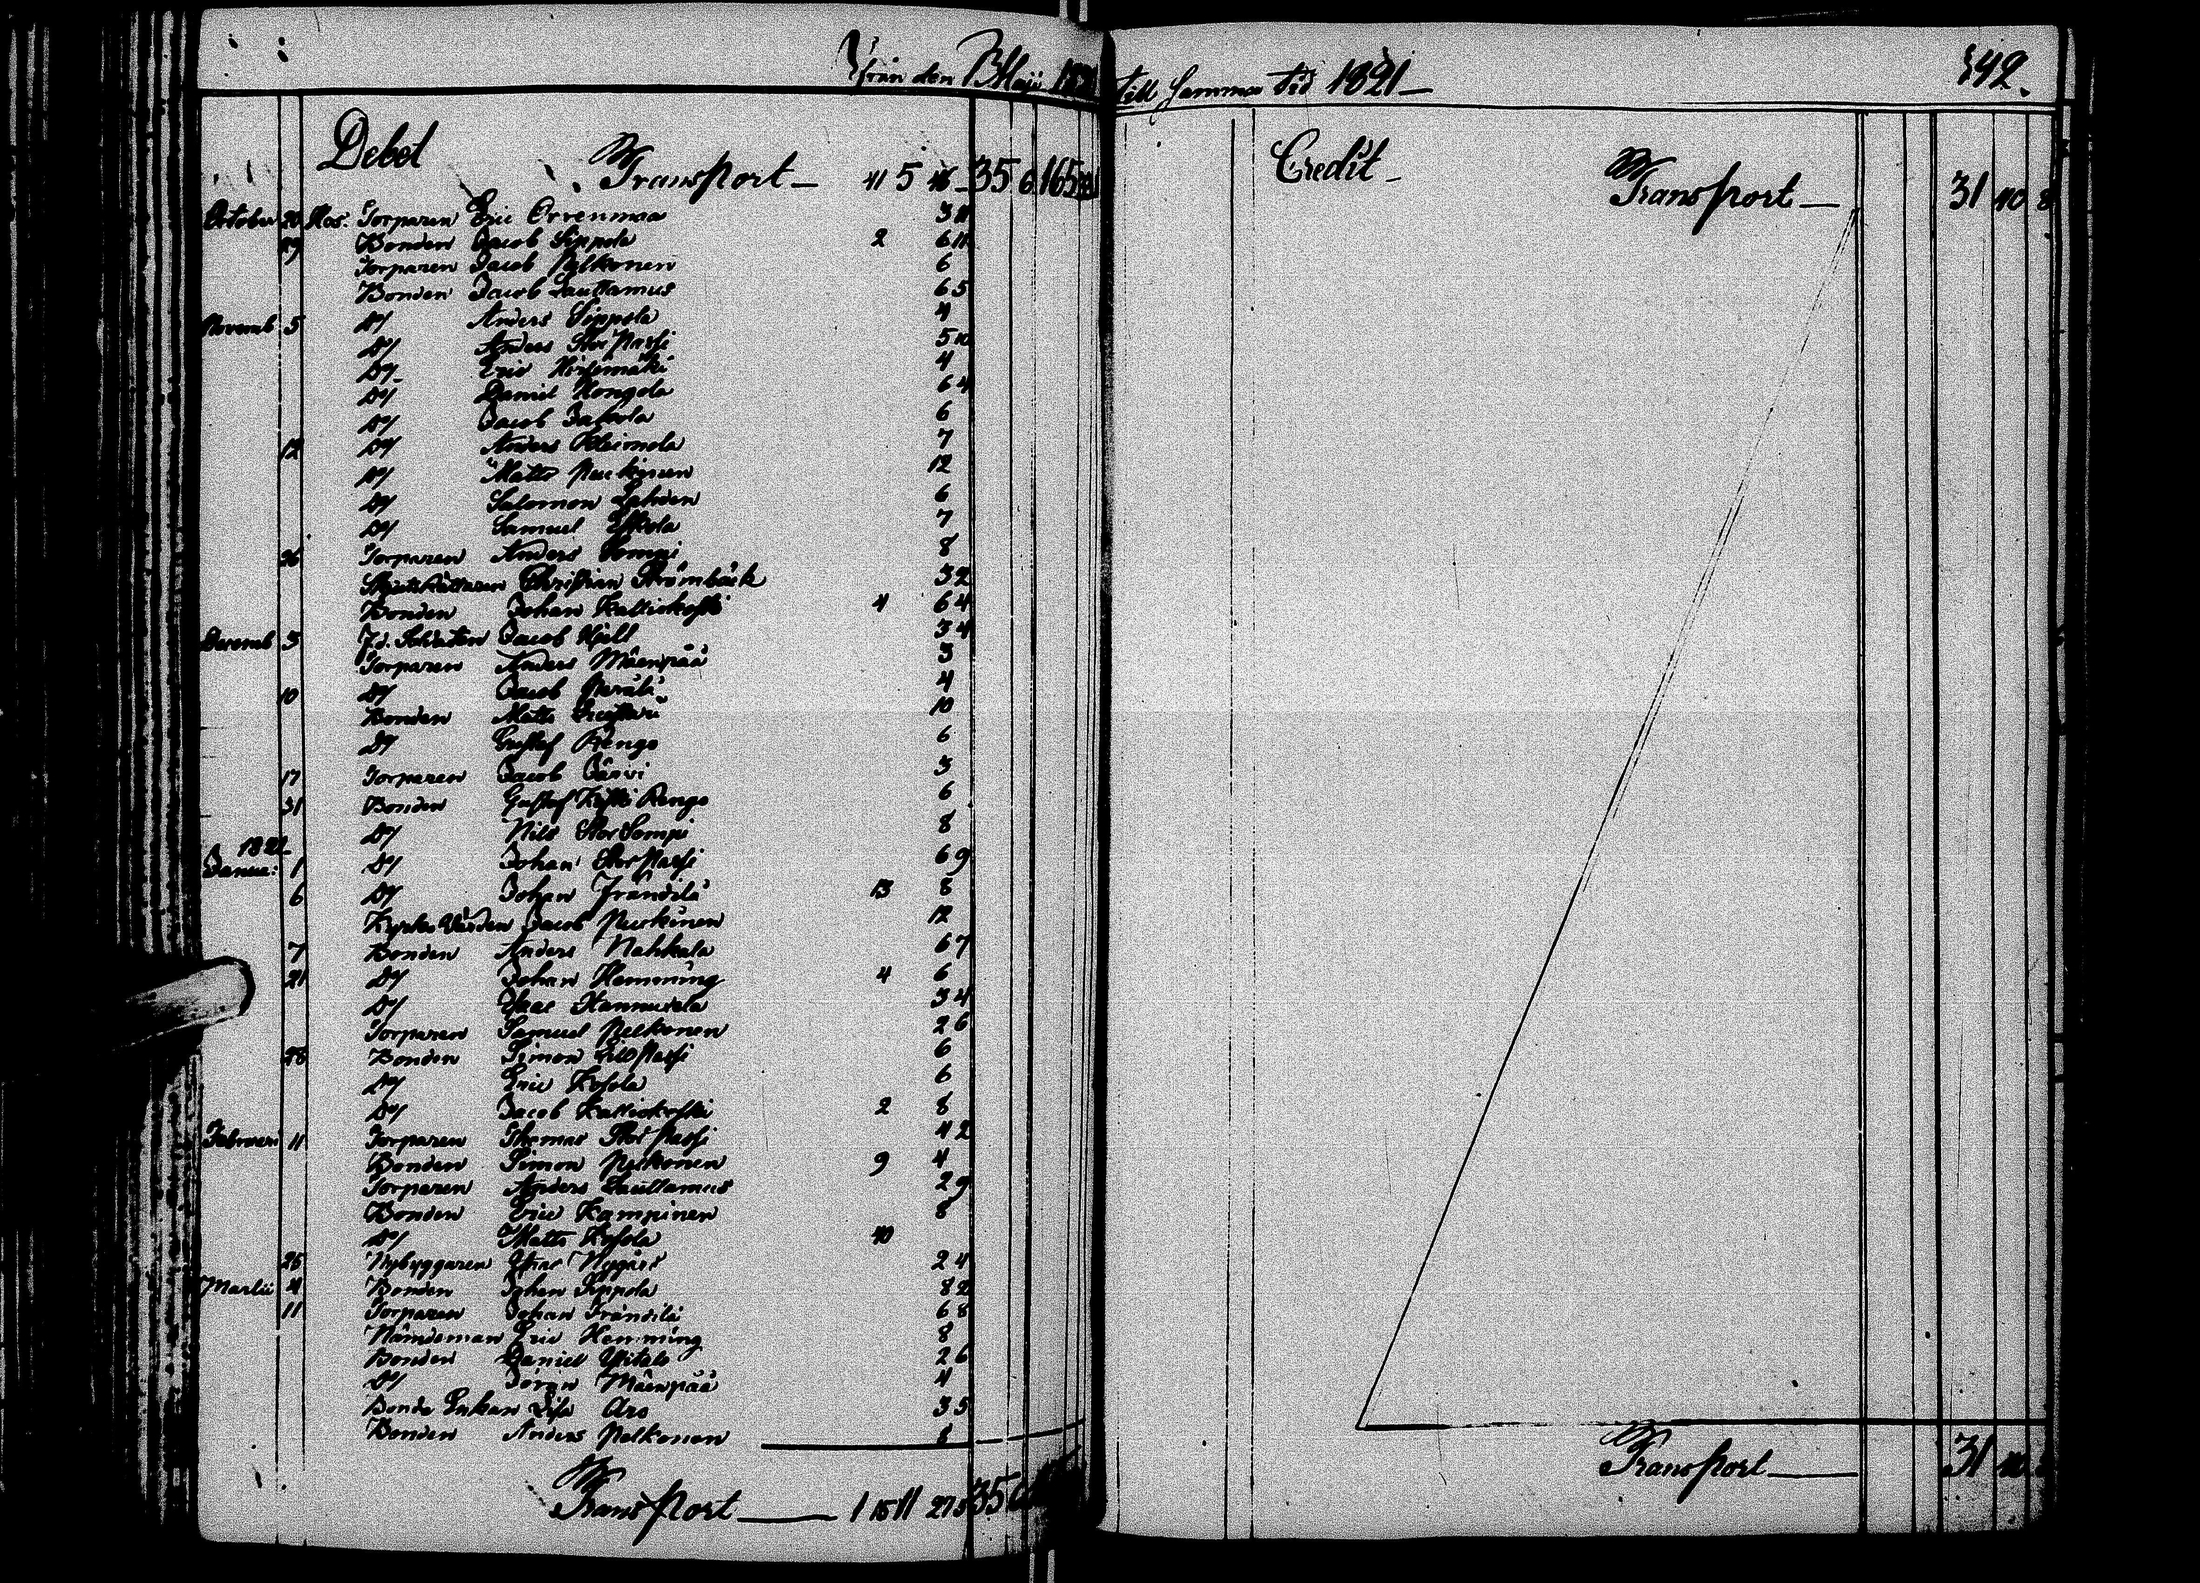 från den 1 Maji 18
till samma tid 1821
342.
Debet
Transport 41 5 16 35 6 165
October 20 Hos: Torparen Eric Orrenmaa 3 11
29 Bonden Jacob Sippola 2 6 11
Torparen Jacob Pelkonen 6
Bonden Jacob Lauttamus 6 5
Novemb 5 Dº Anders Sippola 4
Dº Anders Stor Passi 5 10
Dº Eric Hirsimäki 4
Dº Daniel Kongola 6 4
Dº Jacob 6
12 Dº Anders Kleimola 7
Dº Matts Puckinen 12
Dº Salomon Lahden 6
Dº Samuel Yskola 7
26 Torparen Anders Sompi 8
Christian Strömbäck 3 2
Bonden Johan Kalliokoski 4 6 4
Decemb 3 Fd. Soldaten Jacob Kjell 3 4
Torparen Anders Mäenpää 3
10 Dº Jacob Perälä 4
Bonden Matts 10
Dº Gustaf Rengo 6
17 Torparen Jacob Järvi 3
31 Bonden Gustaf Keski Rengo 6
Dº Nils Stor Sompi 8
1821
Janua: 1 Dº Johan Stor Passi 6 9
6 Dº Johan Frändilä 13 8
Kyrko Värden Jacob Puckinen 12
7 Bonden Anders Nahkala 6 7
21 Dº Johan Hemming 4 6
Dº Isaac Hannuxela 3 4
Torparen Samuel Pelkonen 2 6
28 Bonden Simon Lill Passi 6
Dº Eric Krekola 6
Dº Jacob Kalliokoski 2 8
Februari 11 Torparen Thomas Stor Passi 4 2
Bonden Simon Pelkonen 9 4
Torparen Anders Lauttamus 2 9
Bonden Eric Kampinen 8
Dº Matts 10
25 Nybyggaren Isac Nygård 2 4
Martii 4 Bonden Johan Sippola 8 2
11 Torparen Johan Frändilä 6 8
Nämdeman Eric Hemming 8
Bonden Daniel Ylitalo 2 6
Dº Jöran Mäenpää 4
Bonde Enkan Lisa Aro 3 5
Bonden Anders Pelkonen 8
Transport 1 15 11 27 5 35 6
Credit
Transport 31 10 8
Transport 31 10